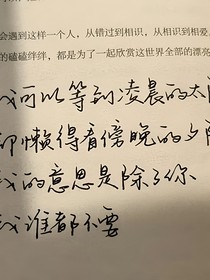 会遇到这样一个人，从错过到相识，从相识到相爱
的磕磕绊绊，都是为了一起欣赏这世界全部的漂亮
我可以等到凌晨的太阳
却懒得看傍晚的夕阳
我的意思是除了你
我谁都不要